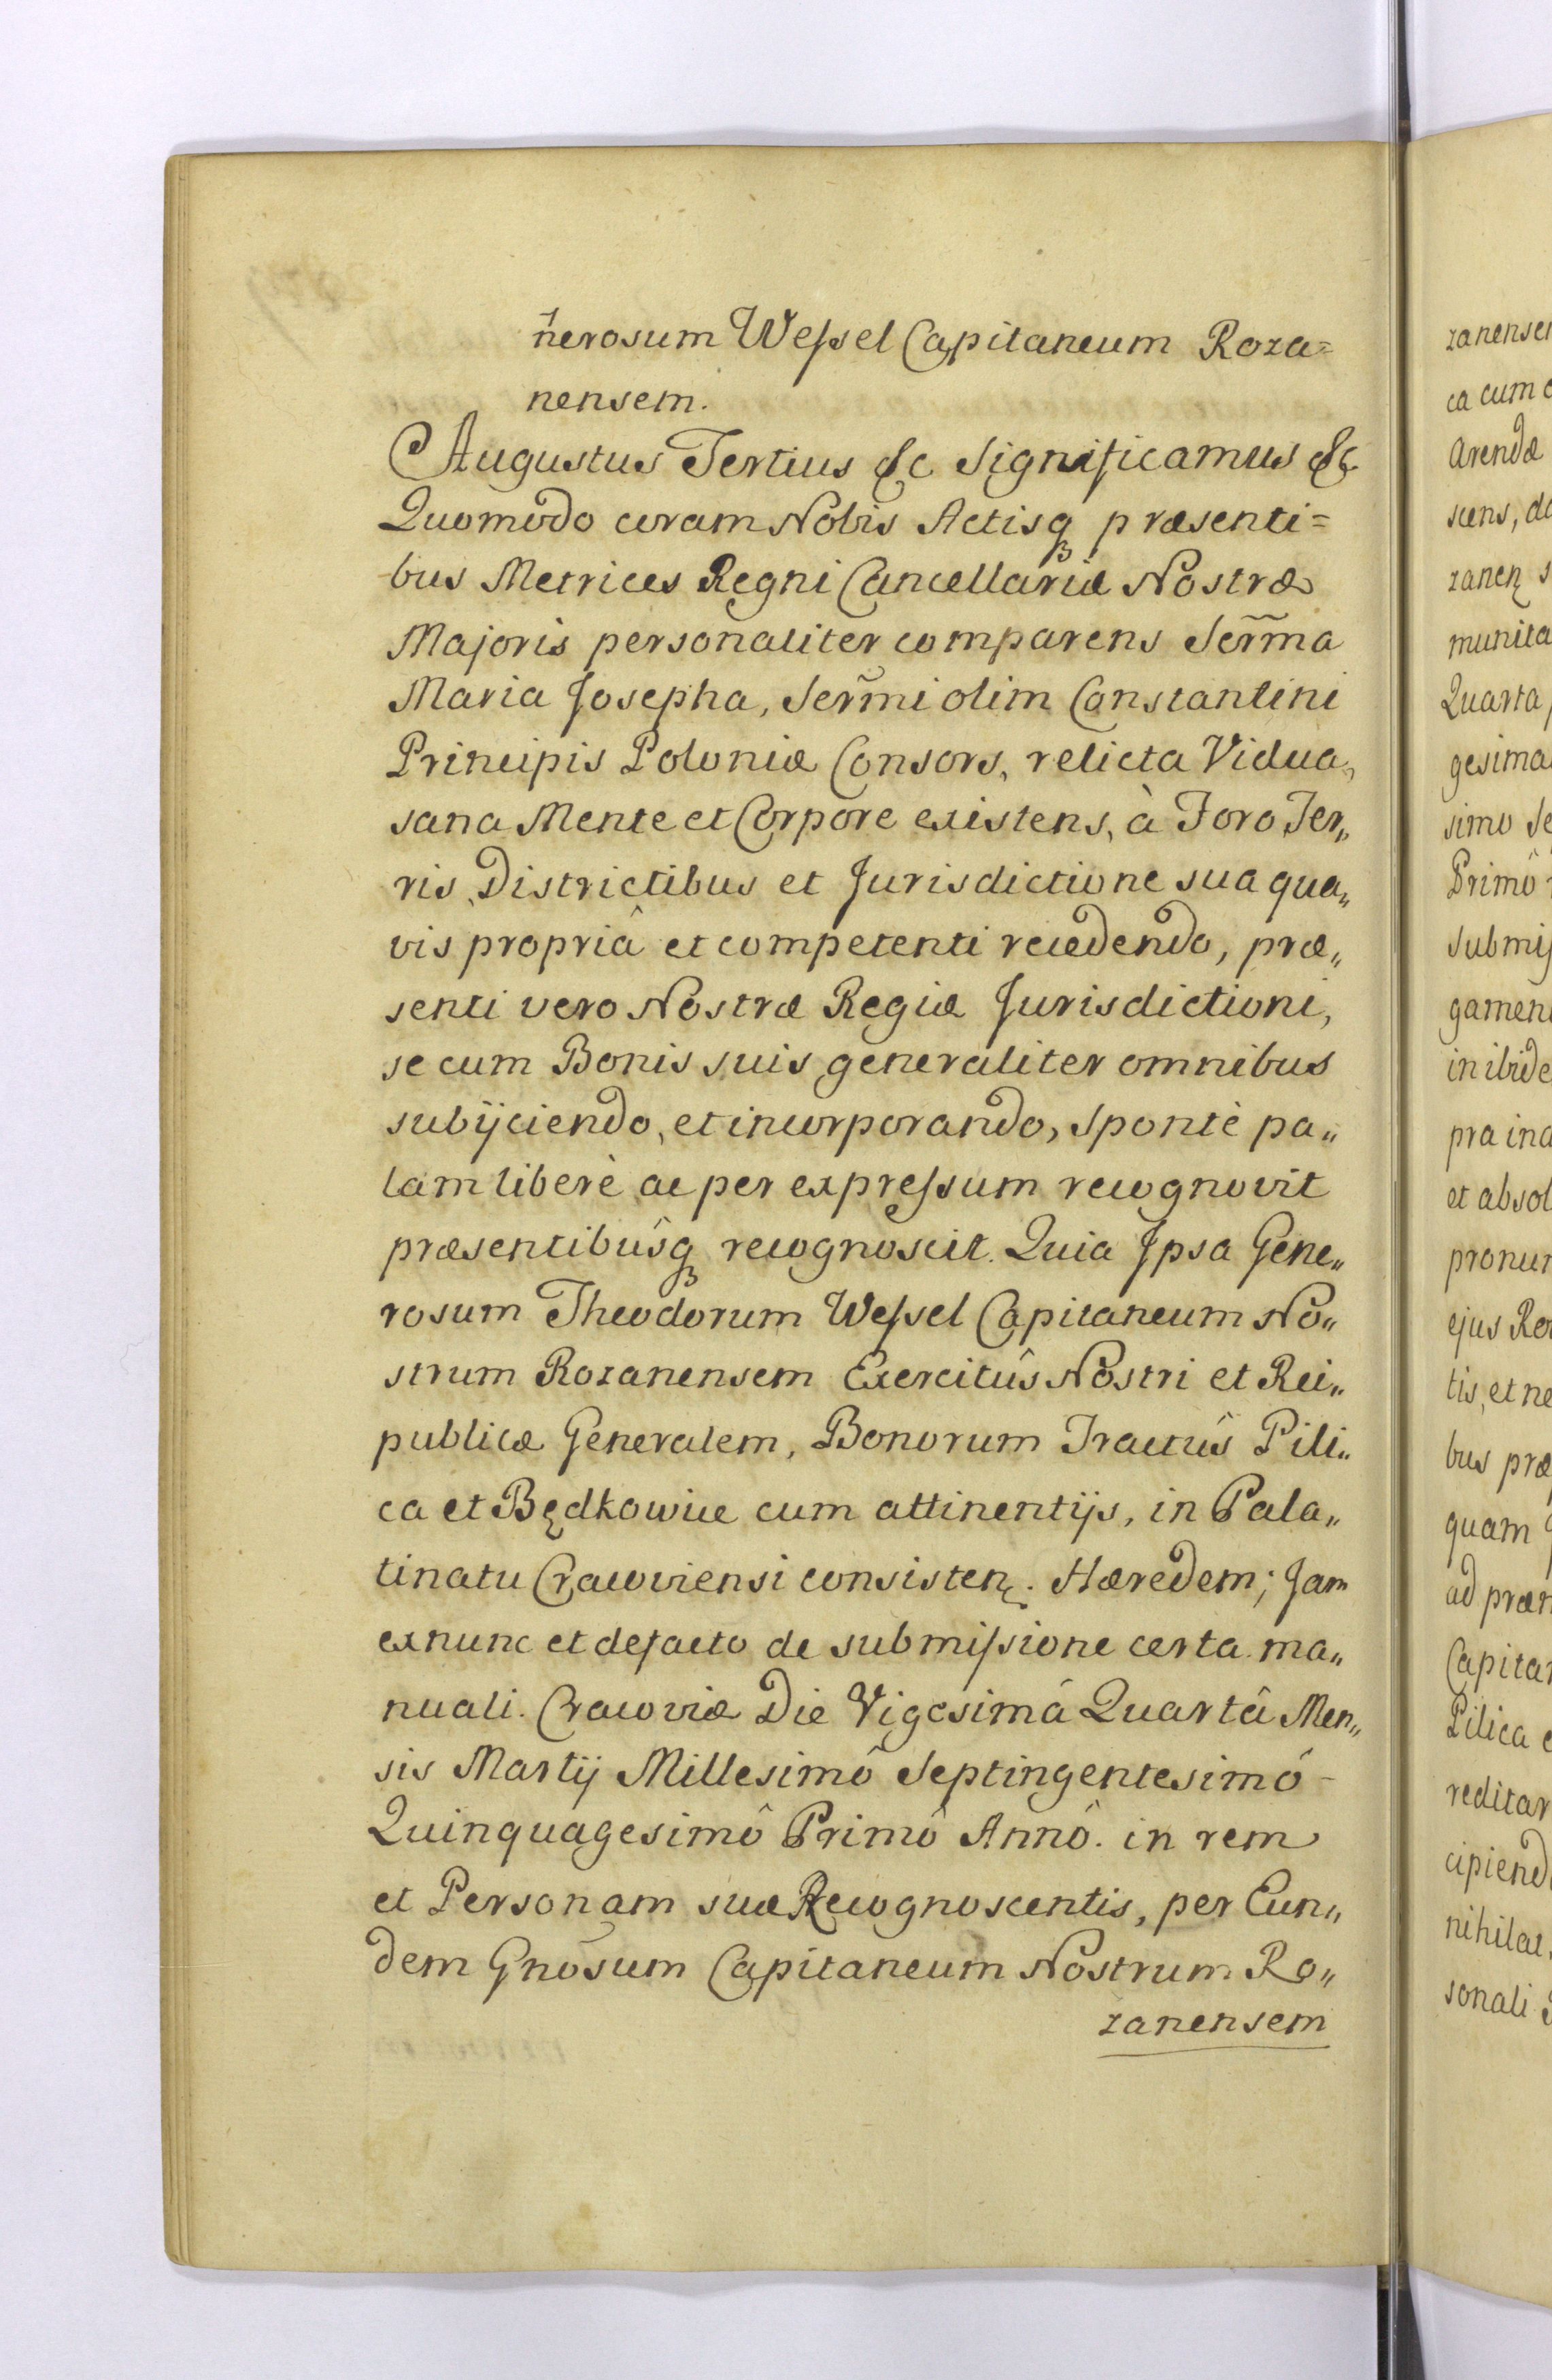 nerosum Weſsel Capitaneum Roza=
nensem.
Augustus Tertius &c Significamus &c
Quomodo coram Nobis Actisq₃ præsenti=
bus Metrices Regni Cancellariæ Nostræ
Majoris personaliter comparens Serm̃a
Maria Josepha, Serm̃i olim Constantini
Principis Poloniæ Consors, relicta Vidua,
sana Mente et Corpore existens, à Foro Ter„
ris, Districtibus et Jurisdictione sua qua„
vis propriâ et competenti recedendo, præ„
senti vero Nostræ Regiæ Jurisdictioni,
se cum Bonis suis generaliter omnibus
subijciendo, et incorporando, sponte pa„
lam liberè ac per expreſsum recognovit
præsentibusq₃ recognoscit. Quia Ipsa Gene„
rosum Theodorum Weſsel Capitaneum No„
strum Rozanensem Exercitûs Nostri et Rei„
publicæ Generalem, Bonorum Tractûs Pili„
ca et Będkowice cum attinentijs, in Pala„
tinatu Cracoviensi consisten. Hæredem; Jam
exnunc et defacto de submiſsione certa ma„
nuali. Cracoviæ Die Vigesimâ Quartâ Men„
sis Martij Millesimô Septingentesimô
Quinquagesimô Primô Annô. in rem
et Personam suæ Recognoscentis, per Eun„
dem Gnõsum Capitaneum Nostrum Ro„
zanensem
zanensem
ca cum
Arendæ
scens,
zanen
munita
Quarta
gesima
simo Se
Primô
submiſ
gamen
inibide
pra ina
et absol
pronun
ejus Ro
tis, et ne
bus præ
quam
ad præn
Capita
Pilica
reditar
cipiend
nihilat
sonali